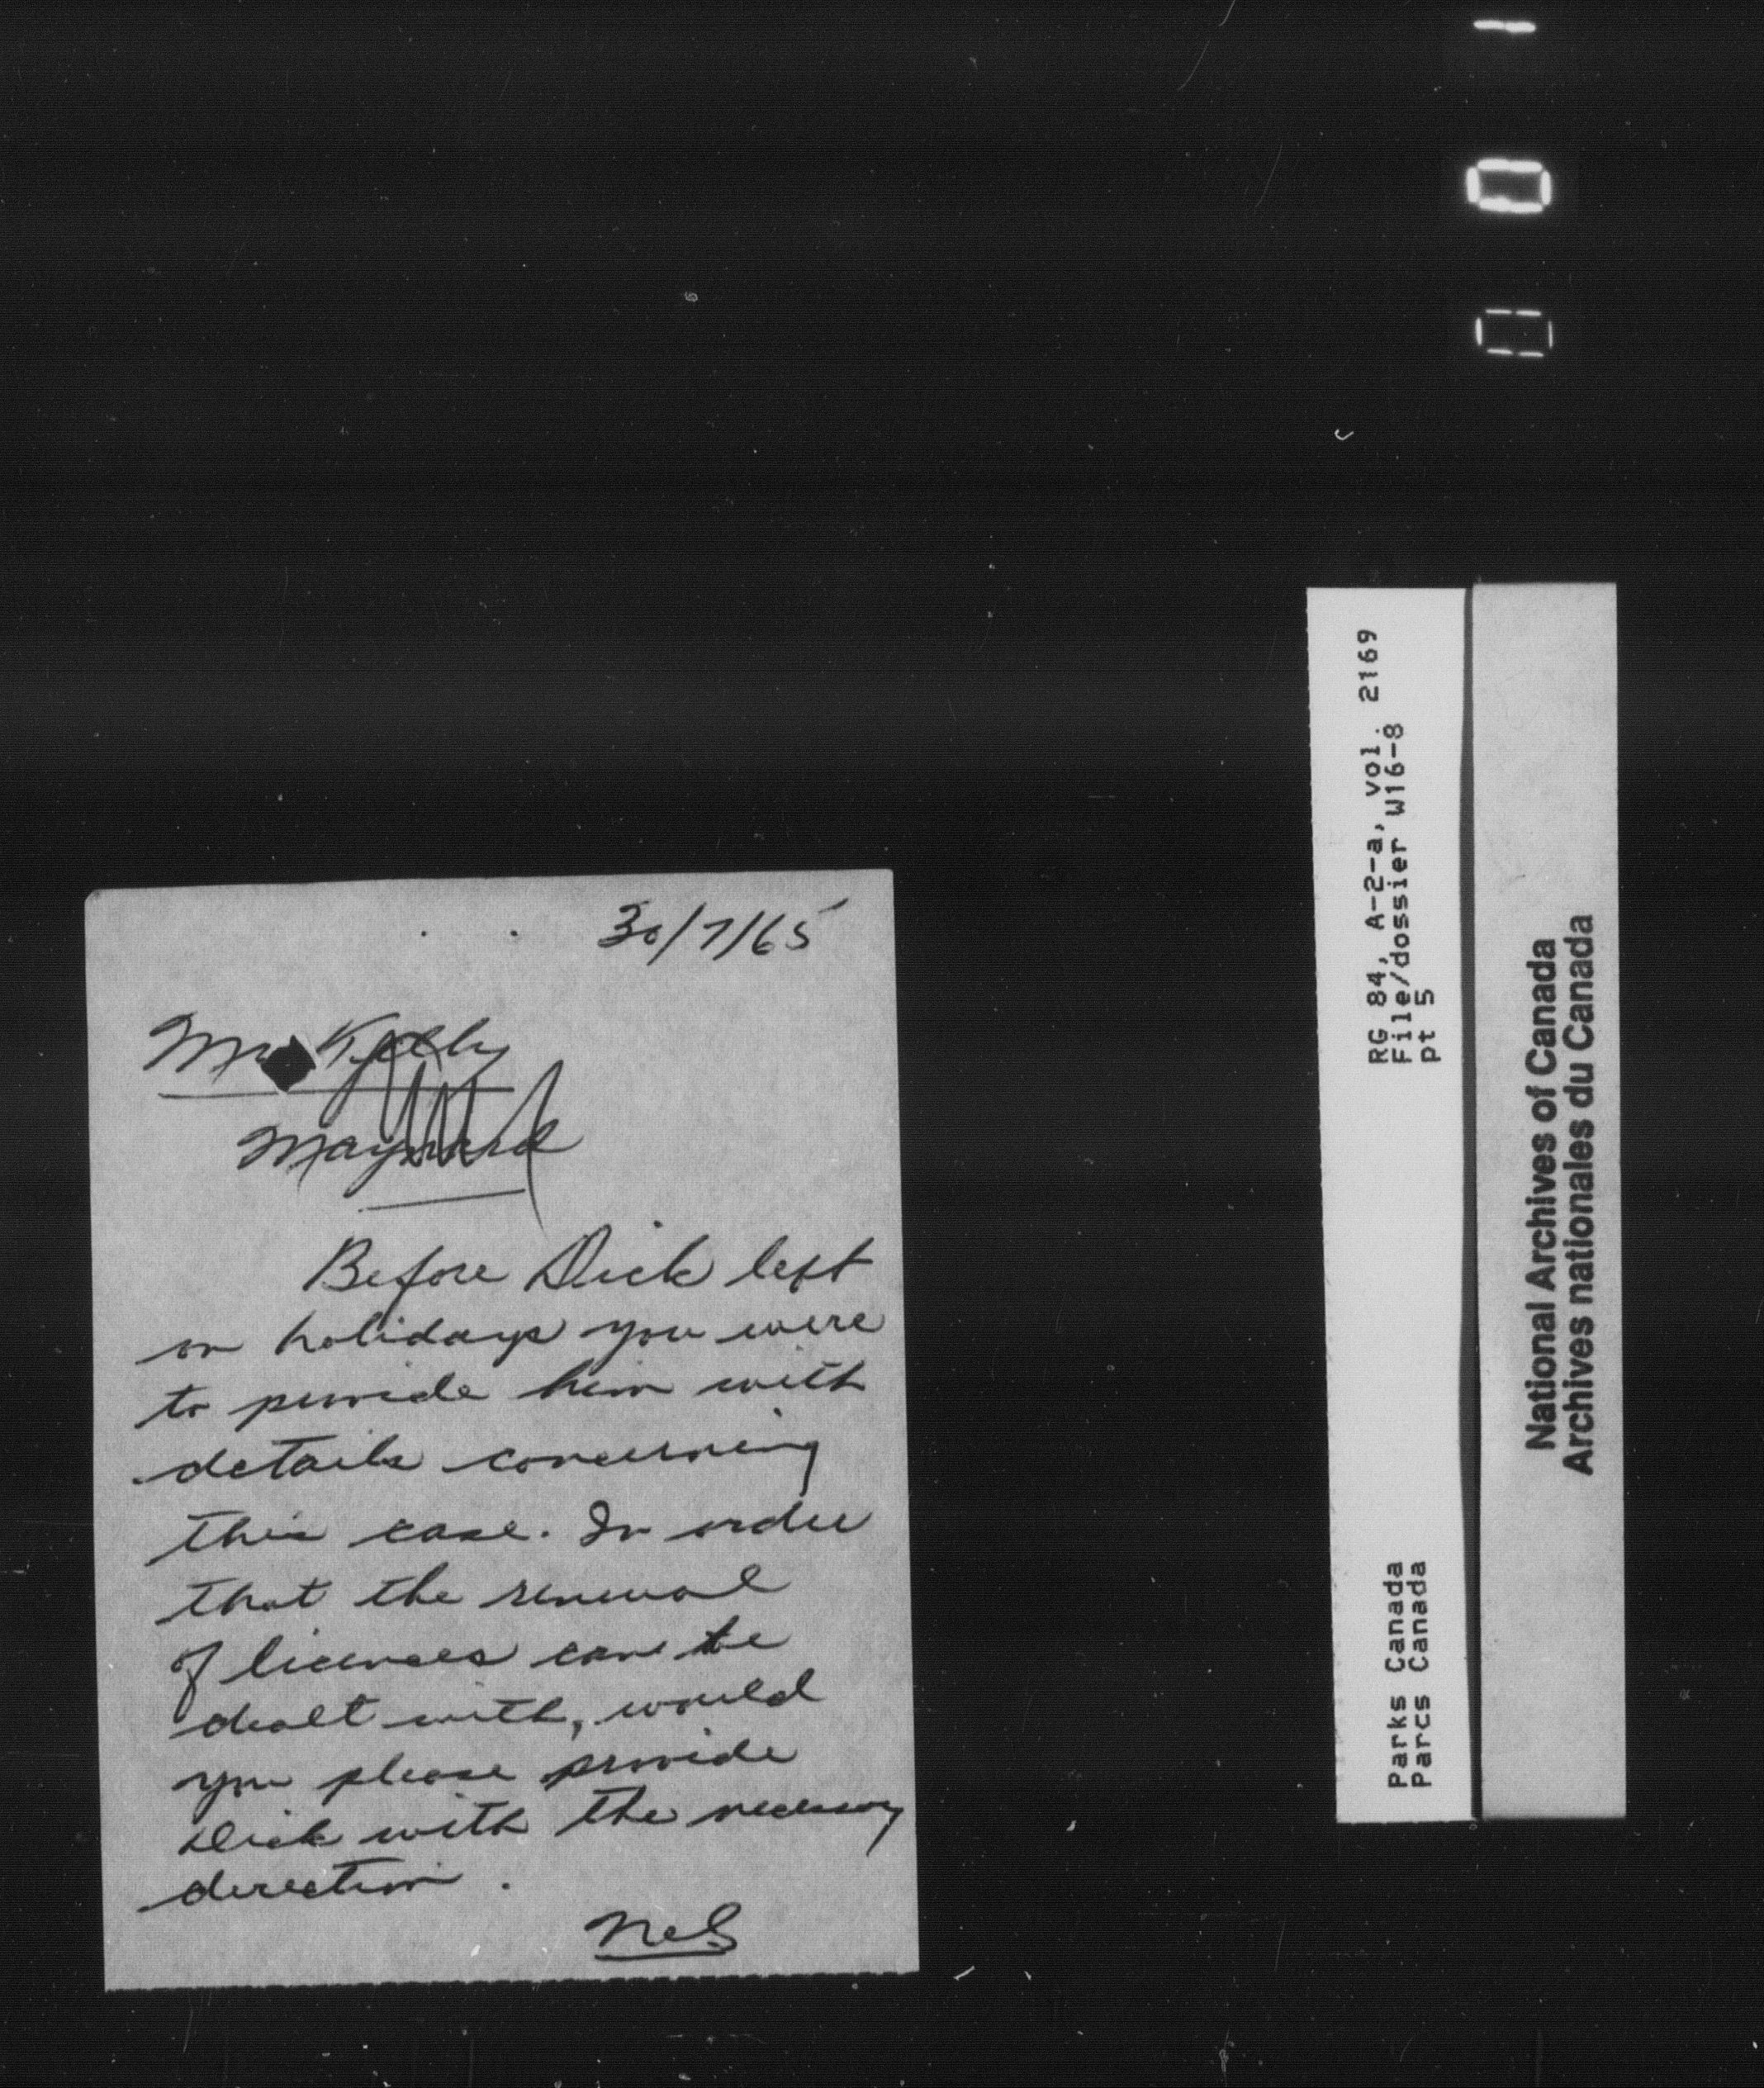 30/7/65
Mr Kelly
Maynard
Before Dick left
on holidays you were
to provide him with
details concerning
this case. In order
that the renewal
of licences can be
dealt with, would
you please provide
Dick with the necessary
direction.
RG 84, A-2-a, vol. 2169
File/dossier W16-8
pt 5
Parks Canada
Parcs Canada
National Archives of Canada
Archives nationales du Canada